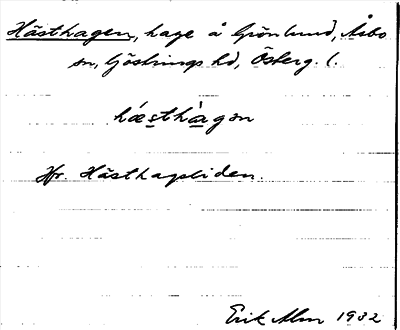 Hästhagen, hage å Grönlund, Åsbo
sn, Göstrings hd, Österg. l.
hǽsthàgən
Jfr. Hästhagsliden.
Erik Alm 1932